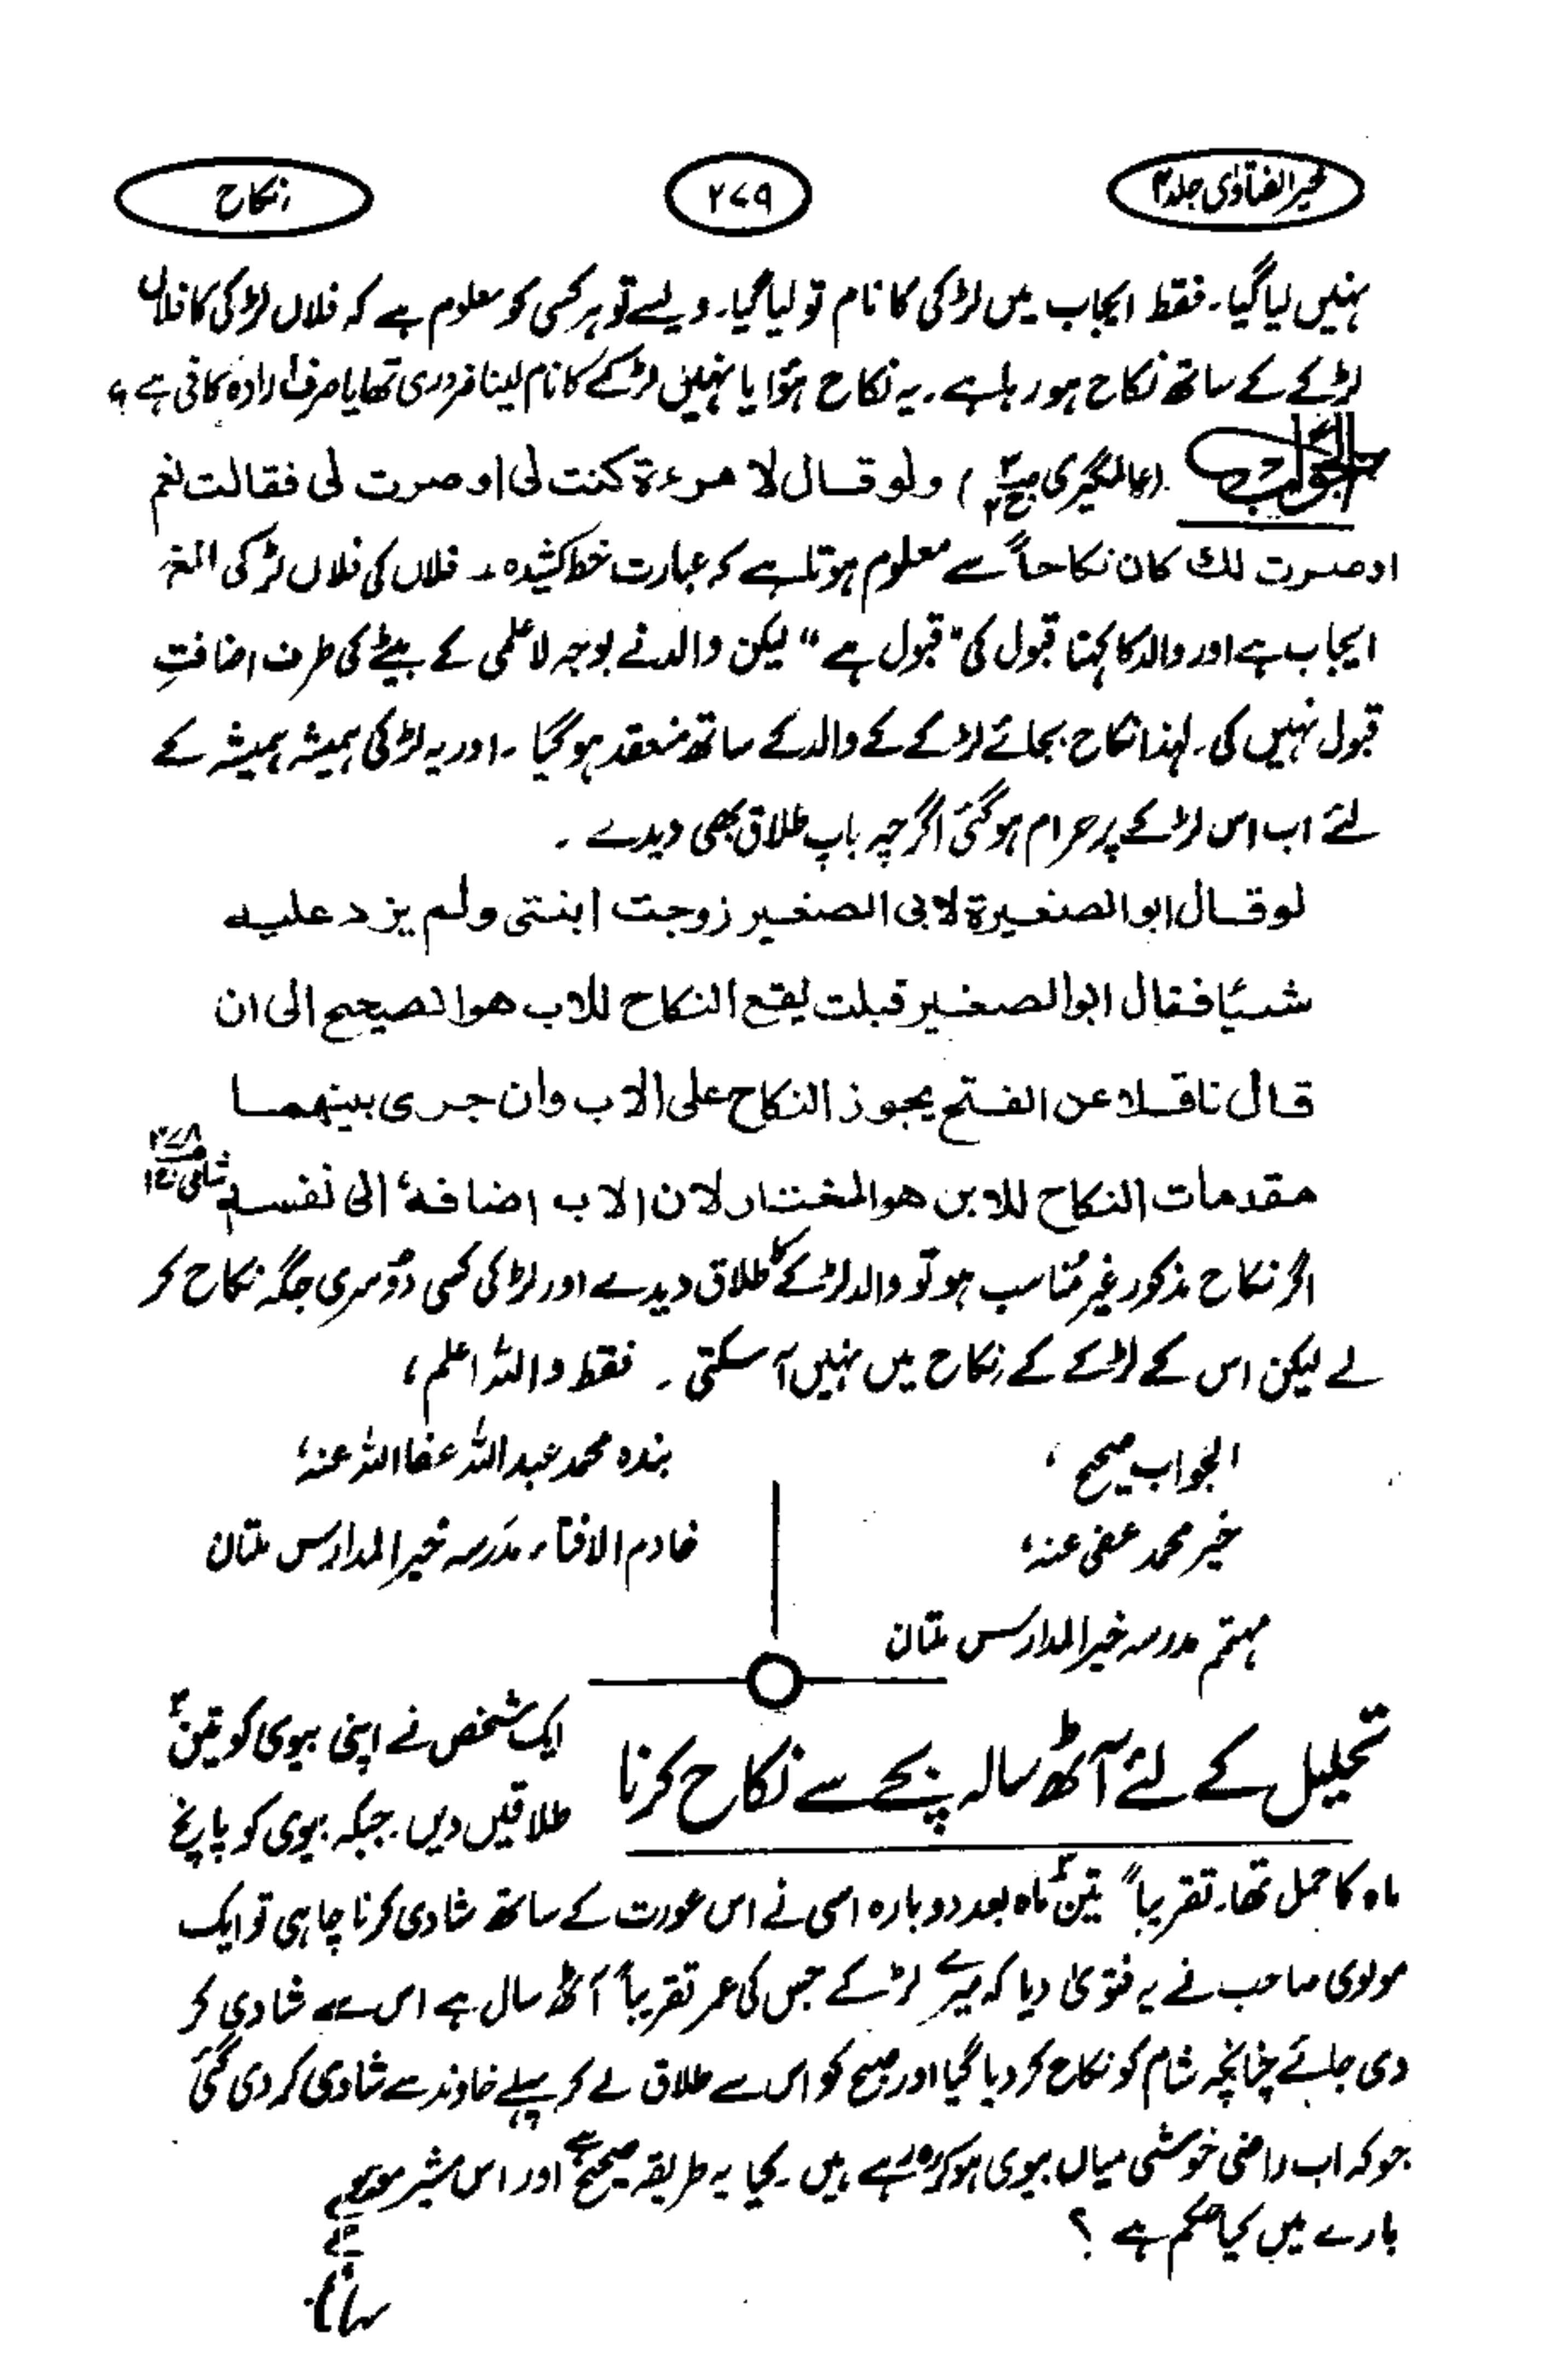 خیر الفتاوٰی جلد ۴
۲۷۹
نکاح
نہیں لیا گیا۔ فقط ایجاب میں لڑکی کا نام تو لیا گیا۔ ویسے تو ہر کسی کو معلوم ہے کہ فلاں لڑکی کا فلاں
لڑکے کے ساتھ نکاح ہو رہا ہے۔ یہ نکاح ہؤا یا نہیں لڑکے کا نام لینا ضروری تھا یا صرف ارادہ کافی ہے ؟
الجواب (عالمگیری) ولو قال لامرءة کنت لی او صرت لی فقالت نعم
او صرت لك کان نکاحاً سے معلوم ہوتا ہے کہ عبارت خط کشیدہ ۔ فلاں کی فلاں لڑکی الخ
ایجاب ہے اور والد کا کہنا قبول کی "قبول ہے" لیکن والد نے بوجہ لاعلمی کے بیٹے کی طرف اضافتِ
قبول نہیں کی۔ لہٰذا نکاح بجائے لڑکے کے والد کے ساتھ منعقد ہو گیا ۔ اور یہ لڑکی ہمیشہ ہمیشہ کے
لئے اب اس لڑکے پر حرام ہو گئی اگرچہ باپ طلاق بھی دیدے ۔
لو قال ابو الصغیرة لابی الصغیر زوجت ابنتی ولم یزد علیه
شیئًا فقال ابو الصغیر قبلت یقع النکاح للاب هو الصحیح الی ان
قال ناقلا عن الفتح یجوز النکاح علی الاب وان جری بینهما
مقدمات النکاح للابن هو المختار لان الاب اضافهٗ الی نفسه شامی
اگر نکاح مذکور غیر مُناسب ہو تو والد لڑکے کا طلاق دیدے اور لڑکی کسی دُوسری جگہ نکاح کر
لے لیکن اس کے لڑکے کے نکاح میں نہیں آ سکتی ۔ فقط واللہ اعلم ،
الجواب صحیح ،
خیر محمد عفی عنہ ،
مہتمم مدرسہ خیر المدارس ملتان
بندہ محمد عبداللہ عفا اللہ عنہ ،
خادم الافتاء مدرسہ خیر المدارس ملتان
تحلیل کے لئے آٹھ سالہ بچے سے نکاح کرنا
ایک شخص نے اپنی بیوی کو تین
طلاقیں دیں۔ جبکہ بیوی کو پانچ
ماہ کا حمل تھا۔ تقریباً تین ماہ بعد دوبارہ اسی نے اس عورت کے ساتھ شادی کرنا چاہی تو ایک
مولوی صاحب نے یہ فتویٰ دیا کہ میرے لڑکے جس کی عمر تقریباً آٹھ سال ہے اس سے شادی کر
دی جائے چنانچہ شام کو نکاح کر دیا گیا اور صبح کو اس سے طلاق لے کر پہلے خاوند سے شادی کر دی گئی
جو کہ اب راضی خوشی میاں بیوی ہو کر رہ رہے ہیں۔ کیا یہ طریقہ صحیح ہے اور اس مشیر مولوی کے
بارے میں کیا حکم ہے ؟